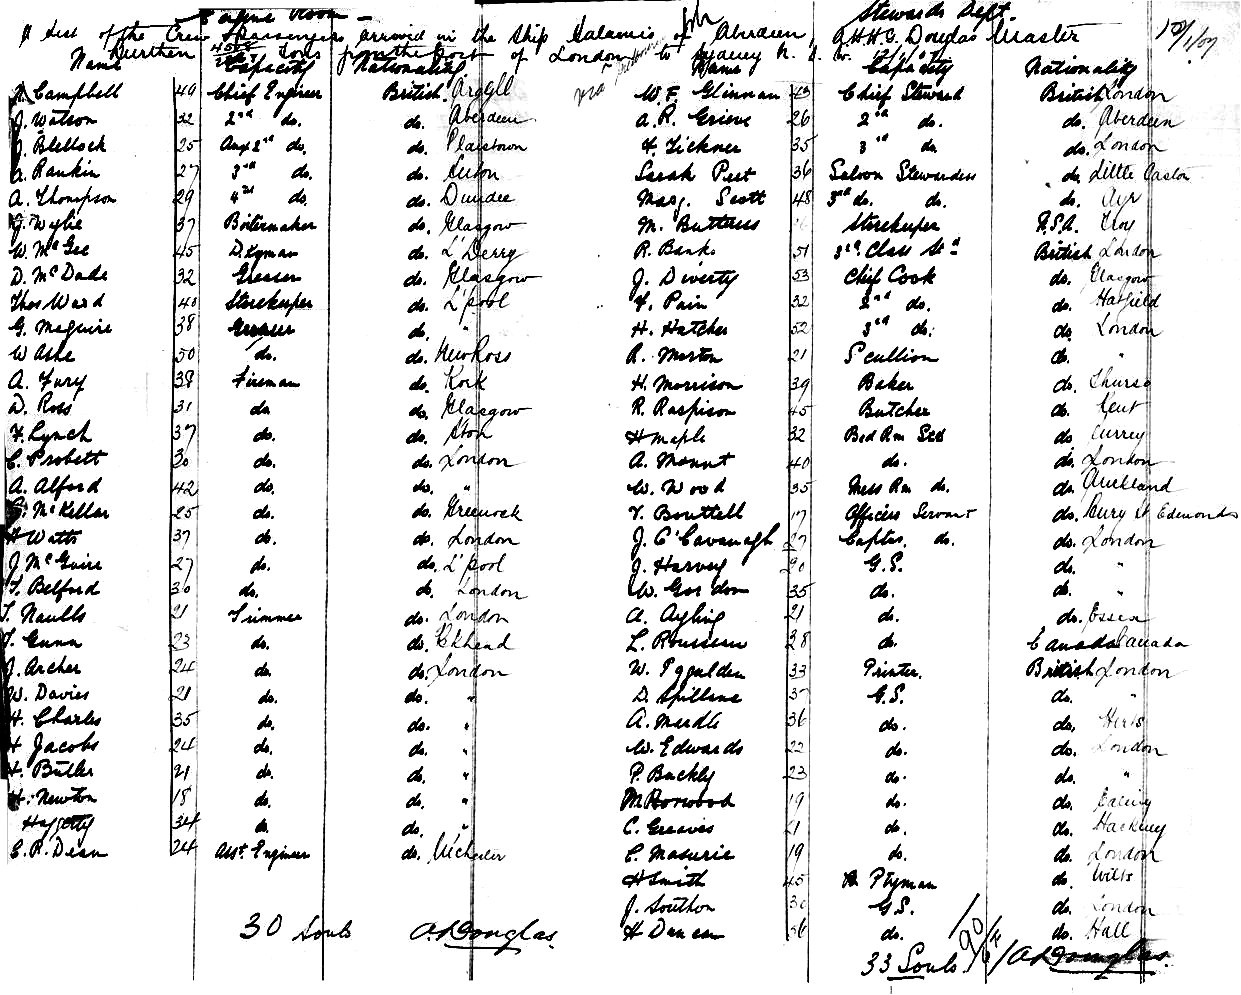 Engine Room - Stewards Dept.
A List of the Crew & Passengers arrived in the Ship Salamis of Aberdeen, A.H.H.G. Douglas Master 12/1/07
Burthen Tons from the Port of London to Sydney N. S. W. 12/1/07
Name Capacity Nationality Name Capacity Nationality
Campbell 40 Chief Engineer British. Argyll
J. Watson 32 2nd do. do. Aberdeen
J. Blellock 25 Aux 2nd do. do. Plaistown
Rankin 27 3rd do. do.
A. Thompson 29 4th do. do. Dundee
J. Wylie 37 Boilermaker do. Glasgow
W. McGee 45 D. Kyman do. L'Derry
D. McDade 32 Greaser do. Glasgow
Thos Ward 40 Storekeeper do. L'pool
G. Maguire 38 Greaser do. "
W Ashe 50 do. do. New Ross
A. Fury 38 Fireman do. Kork
D. Ross 31 do do. Glasgow
F. Lynch 37 do. do.
C. Probett 30 do. do. London
A. Alford 42 do. do. "
McKellar 25 do. do. Greenock
Watts 37 do. do. London
J. McGuire 27 do. do. L'pool
T. Belford 30 do. do. London
T. Naulls 21 Trimmer do. London
T. Gunn 23 do. do. B'khead
J. Archer 24 do. do. London
W. Davies 21 do. do. "
H. Charles 35 do. do. "
H Jacobs 24 do. do. "
H. Butler 21 do. do. "
H. Newton 18 do. do. "
Haggetty 34 do. do. "
E. R. Dean 24 Asst. Engineer do.
30 Souls A. Douglas.
W. F. Glinnan 43 Chief Steward British London
A. R. Grieve 26 2nd do. do. Aberdeen
F. Tickner 35 3rd do do. London
Sarah Peet 36 Saloon Stewardess do. Little Caston
Marg. Scott 48 3rd do. do. do. Ayr
M. Butters Storekeeper U.S.A. Troy
R. Banks 51 3rd Class Std British London
J. Diverty 53 Chief Cook do. Glasgow
F. Pain 32 2nd do. do. Hatfield
H. Hatcher 52 3rd do. do. London
R. Morton 21 Scullion do. "
H. Morrison 39 Baker do. Thurso
R. Raspison 45 Butcher do. Kent
H Maple 32 Bed Rm Std do
A. Mount 40 do. do. London
W. Wood 35 Mess Rm do. do. Auckland
T. Bouttell 17 Officers Servant do. Bury St Edmonds
J. O'Cavanagh 27 Captns. do. do. London
J. Harvey 20 G.S. do. "
W. Gordon 35 do. do. "
A. Ayling 21 do. do. Essex
L. Rousseau 28 do. Canada Canada
W. Iggulden 33 Printer. British London
D. Spillane G.S. do. "
A. Meedle 36 do. do. Herts
W. Edwards 22 do. do. London
P. Buckly 23 do. do. "
M. Horwood 19 do. do. Ealing
C. Greaves 21 do. do. Hackney
C. Masurie 19 do. do. London
H Smith 45 Ptyman do. Wilts
J. Southon 30 G.S. do. London
H Duncan 36 do. do. Hall
33 Souls A. Douglas.